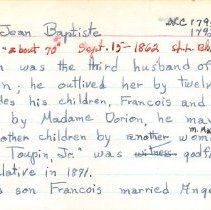 Jean Baptiste ARC 179
179
"about 70" Sept. 15 - 1862 St. L.
n was the third husband of
n; he outlived her by twelve
des his children, Francois and
by Madame Dorion, he may
other children by another wom
m. Ma
Toupin, Jr." was witness godf
lative in 1891.
s son Francois married Ange